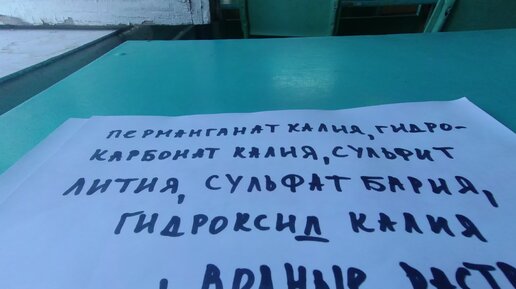 ПЕРМАНГАНАТ КАЛИЯ, ГИДРО-
КАРБОНАТ КАЛИЯ, СУЛЬФИТ
ЛИТИЯ, СУЛЬФАТ БАРИЯ,
ГИДРОКСИД КАЛИЯ